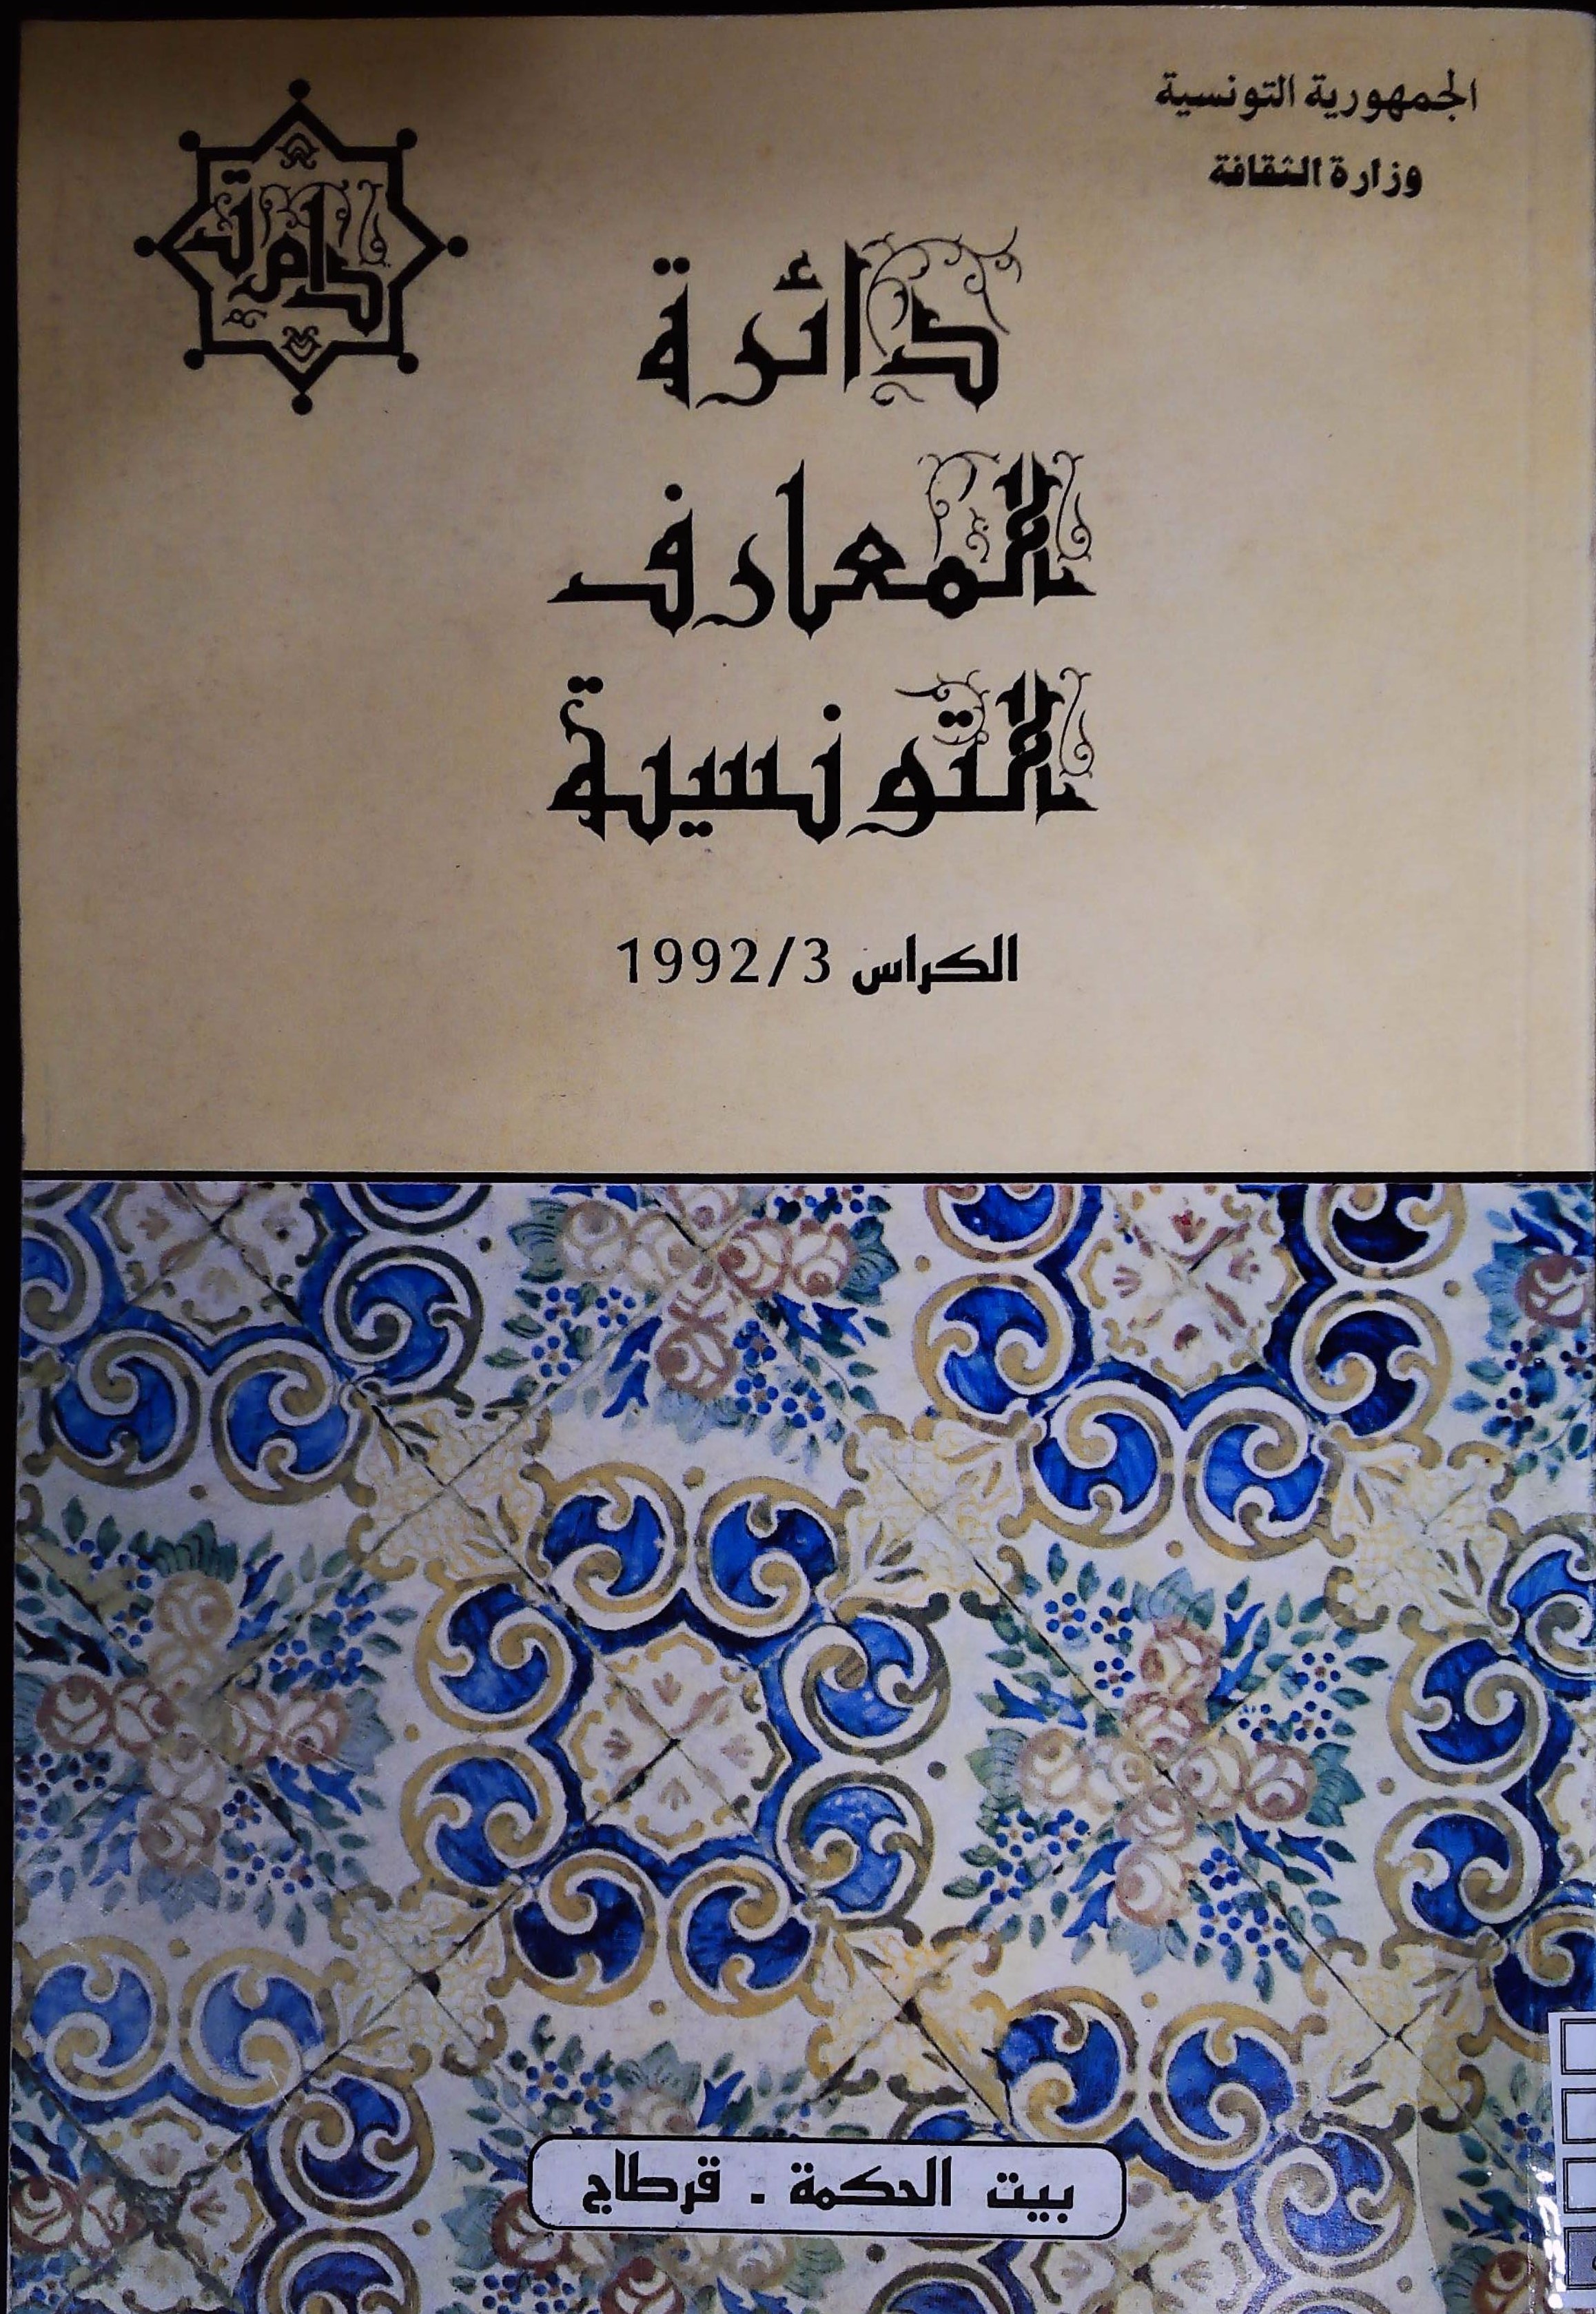 الجمهورية التونسية
وزارة الثقافة
دائرة
المعارف
التونسية
الكراس 1992/3
بيت الحكمة - قرطاج